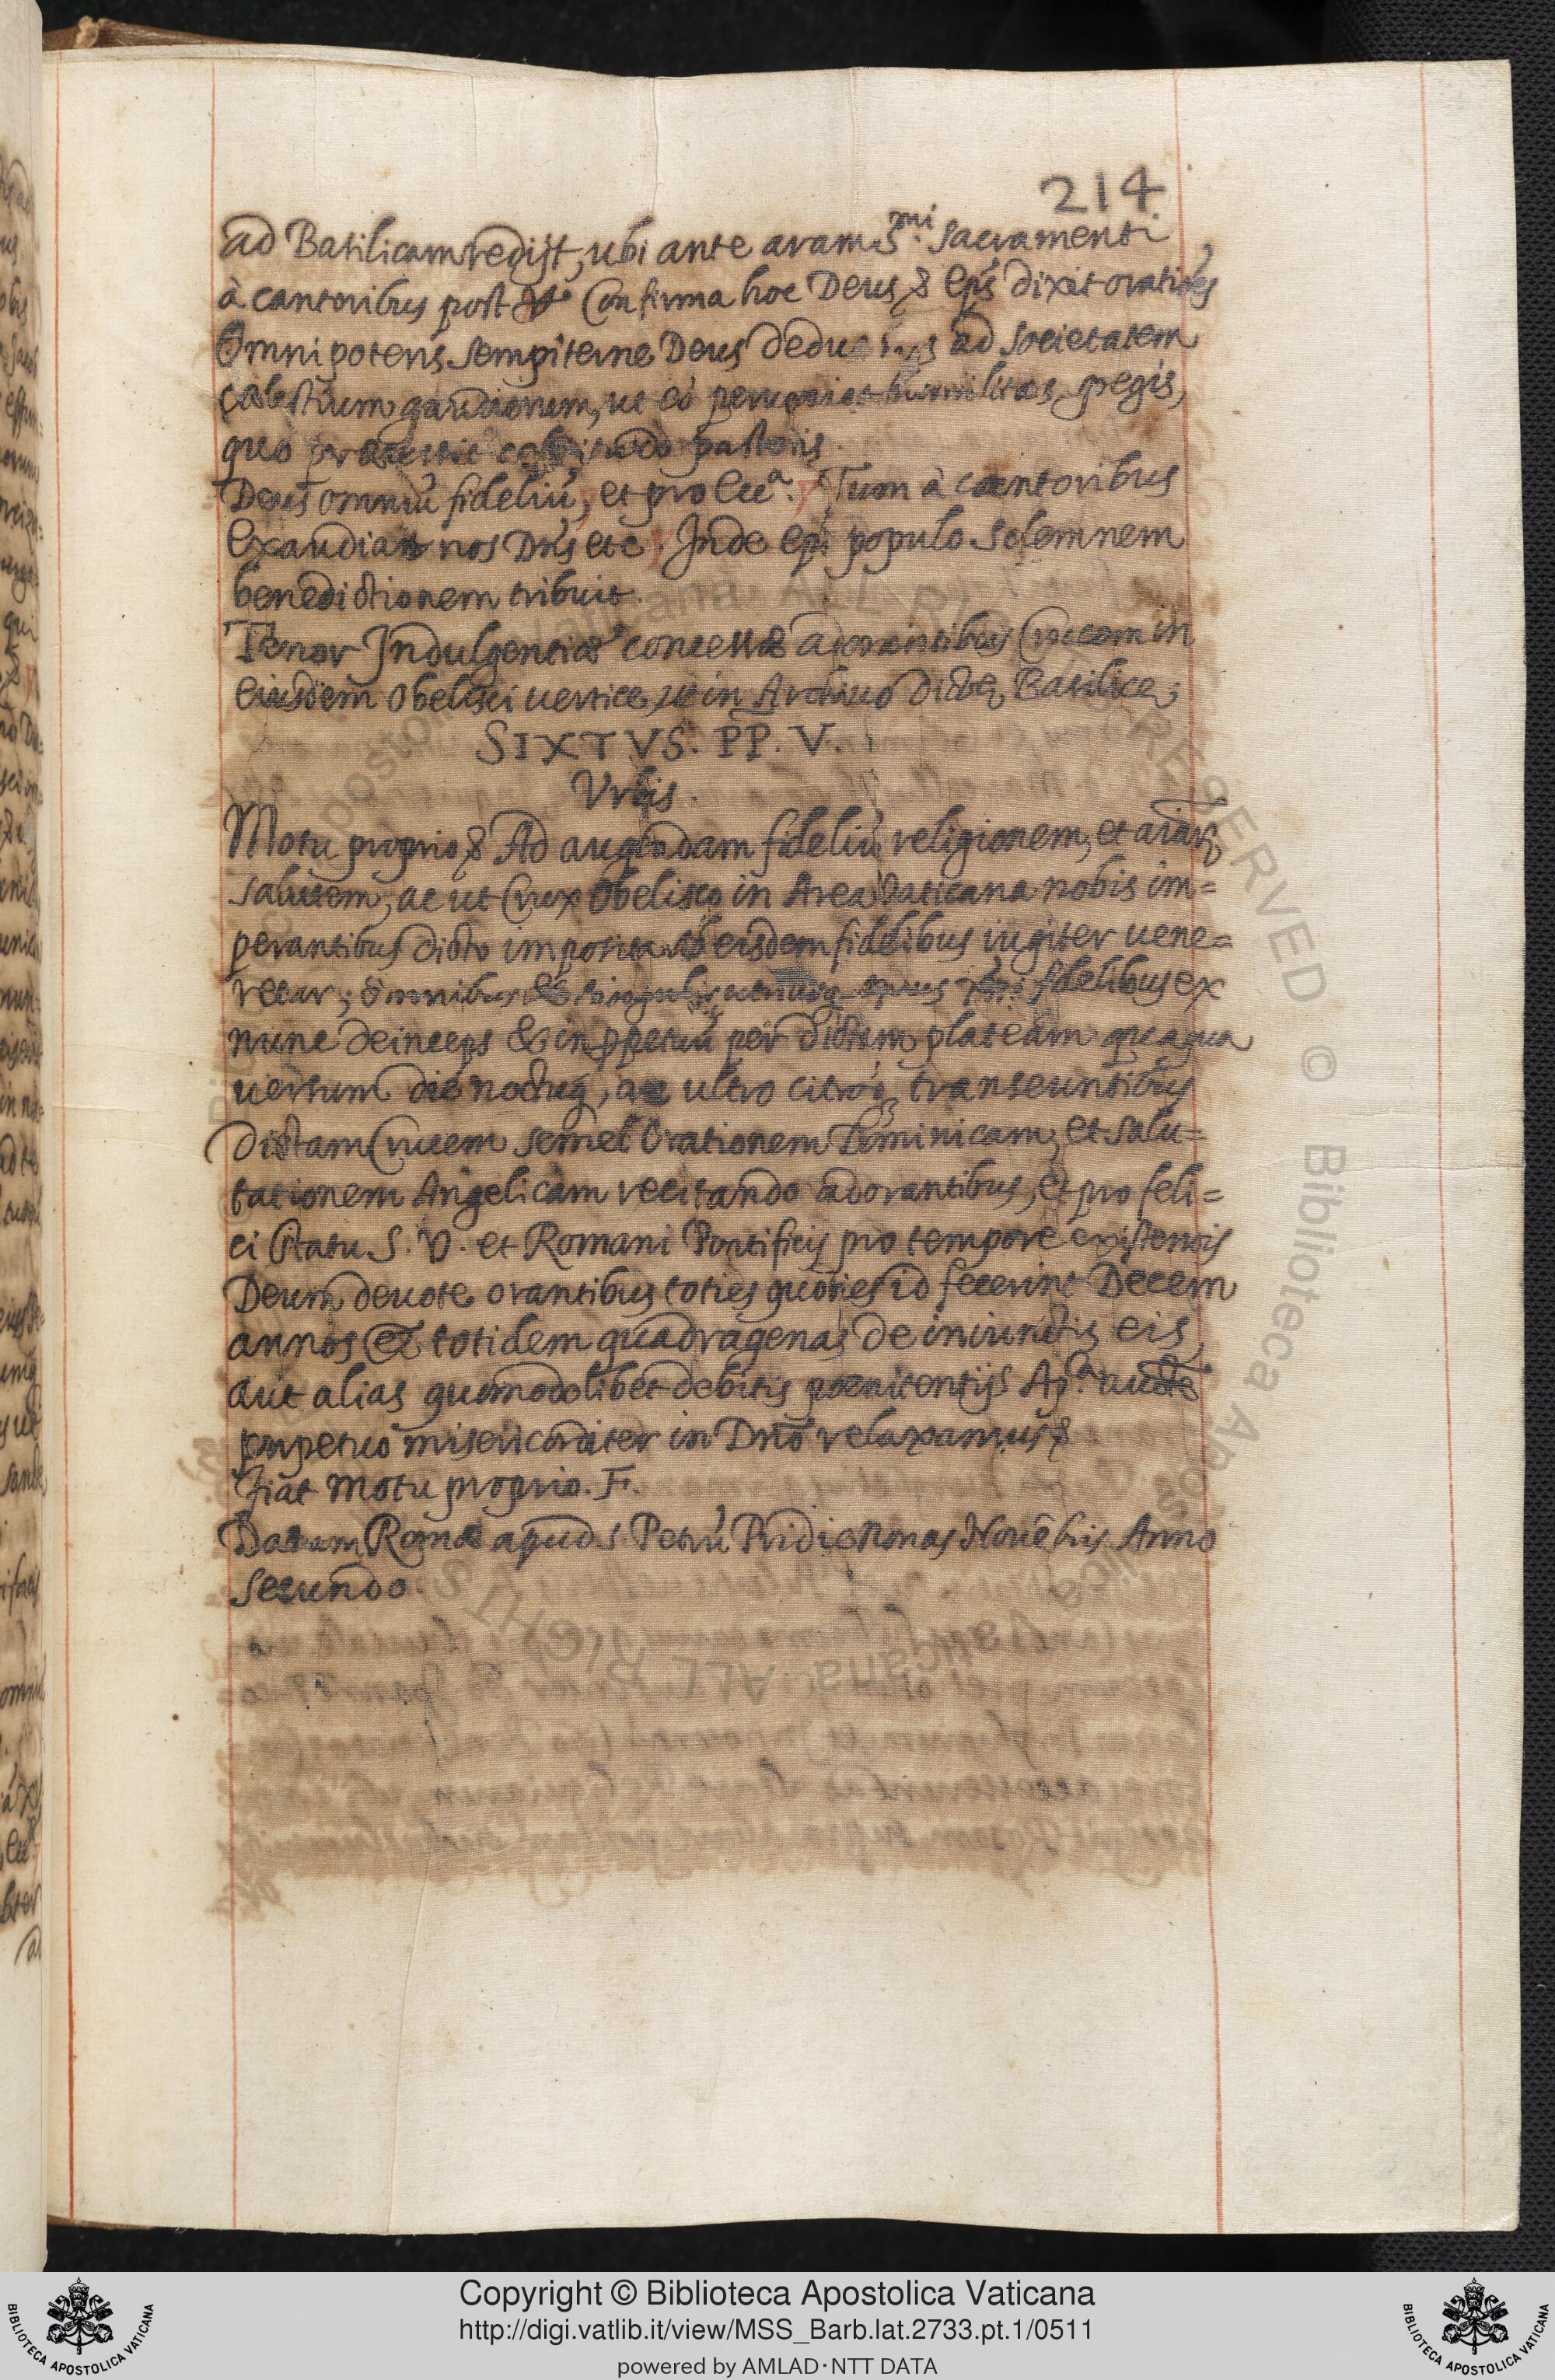 214
ad Basilicam redijt, ubi ante aram S.mi Sacramenti
à cantoribus post Confirma hoc Deus & Eps dixit orationes
Omnipotens sempiterne Deus deduc nos ad societatem
cælestium gaudiorum, ut eò perueniat humilitas gregis,
quo præcessit celsitudo pastoris.
Deus omniũ fideliũ, et pro Ecc.a. Tum à cantoribus
Exaudiat nos Dñs etc. Inde Eps populo solemnem
benedictionem tribuit.
Tenor Indulgentiæ concessæ adorantibus Crucem in
eiusdem obelisci vertice, ut in Archiuo dictę Basilicę
SIXTVS. PP. V.
Vrbis.
Motu proprio & Ad augendam fideliũ religionem, et aĩarũ
salutem, ac ut Crux Obelisco in Area Vaticana nobis im=
perantibus dicto imposita ab eisdem fidelibus iugiter uene=
retur; omnibus & singulis utriusq sexus Xpi fidelibus ex
nunc deinceps & in ppetuũ per dictam plateam quaqua
uersum die noctuq, ac ultro citroq transeuntibus
dictam Crucem semel Orationem Dominicam, et salu=
tationem Angelicam recitando adorantibus, et pro feli=
ci statu S. V. et Romani Pontificis pro tempore existentis
Deum deuote orantibus toties quoties id fecerint Decem
annos & totidem quadragenas de iniunctis eis,
aut alias quomodolibet debitis poenitentijs Ap.ca aucte
perpetuo misericorditer in Dño relaxamus &
Fiat Motu proprio. F.
Datum Romæ apud S. Petrũ Pridie Nonas Nouẽbris Anno
Secundo.
Copyright © Biblioteca Apostolica Vaticana
http://digi.vatlib.it/view/MSS_Barb.lat.2733.pt.1/0511
powered by AMLAD·NTT DATA